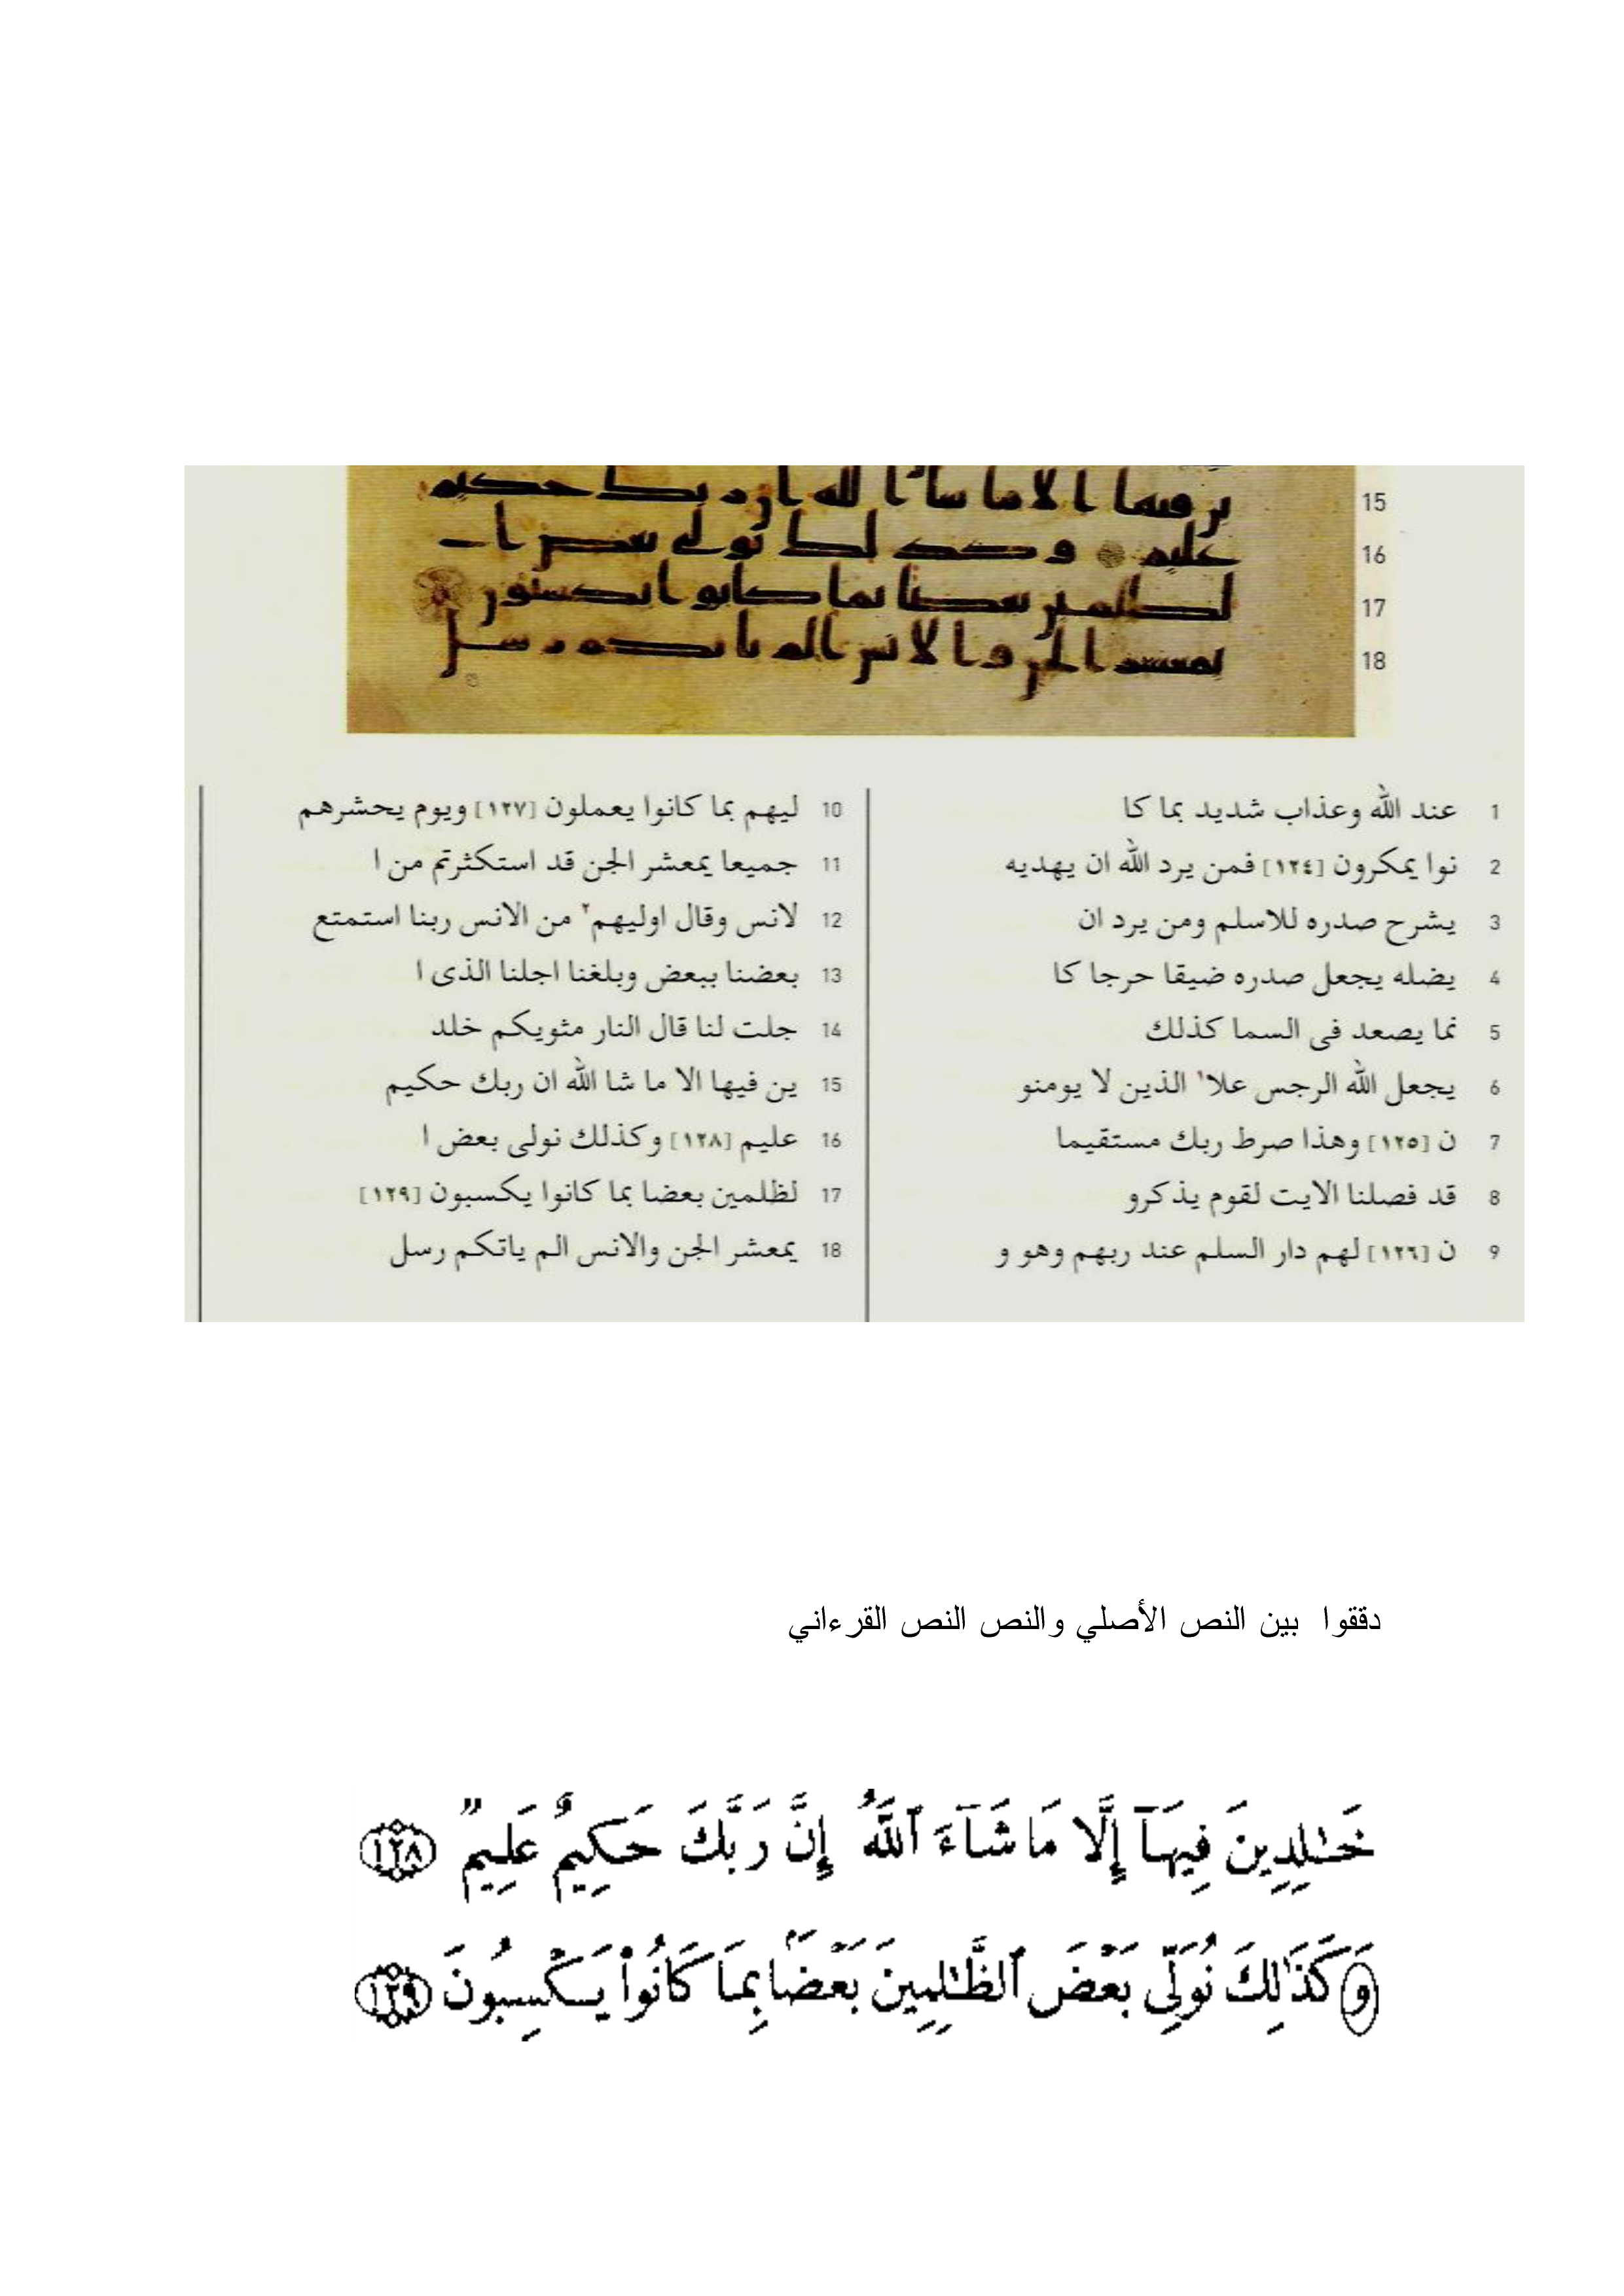 15 ين فيها الا ما شا الله ان ربك حكيم
16 عليم وكذلك نولى بعض ا
17 لظلمين بعضا بما كانوا يكسبون
18 يمعشر الجن والانس الم ياتكم رسل
1 عند الله وعذاب شديد بما كا
2 نوا يمكرون [١٢٤] فمن يرد الله ان يهديه
3 يشرح صدره للاسلم ومن يرد ان
4 يضله يجعل صدره ضيقا حرجا كا
5 نما يصعد فى السما كذلك
6 يجعل الله الرجس علا١ الذين لا يومنو
7 ن [١٢٥] وهذا صرط ربك مستقيما
8 قد فصلنا الايت لقوم يذكرو
9 ن [١٢٦] لهم دار السلم عند ربهم وهو و
10 ليهم بما كانوا يعملون [١٢٧] ويوم يحشرهم
11 جميعا يمعشر الجن قد استكثرتم من ا
12 لانس وقال اوليهم٢ من الانس ربنا استمتع
13 بعضنا ببعض وبلغنا اجلنا الذى ا
14 جلت لنا قال النار مثويكم خلد
15 ين فيها الا ما شا الله ان ربك حكيم
16 عليم [١٢٨] وكذلك نولى بعض ا
17 لظلمين بعضا بما كانوا يكسبون [١٢٩]
18 يمعشر الجن والانس الم ياتكم رسل
دققوا بين النص الأصلي والنص النص القرءاني
خَـٰلِدِينَ فِيهَآ إِلَّا مَا شَآءَ ٱللَّهُ إِنَّ رَبَّكَ حَكِيمٌ عَلِيمٌ ١٢٨
وَكَذَٰلِكَ نُوَلِّى بَعْضَ ٱلظَّـٰلِمِينَ بَعْضًا بِمَا كَانُوا۟ يَكْسِبُونَ ١٢٩